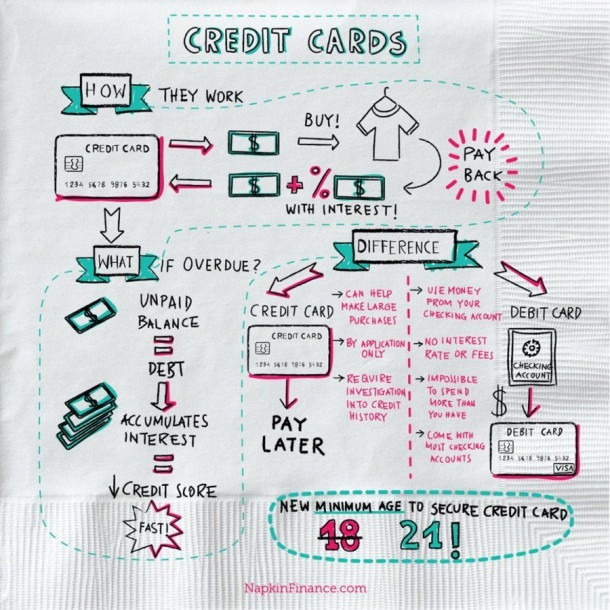 CREDIT CARDS
HOW
THEY WORK
CREDIT CARD
1234 5678 9876 5432
$
BUY!
PAY
BACK
$ + % $
WITH INTEREST!
WHAT
IF OVERDUE?
$
UNPAID
BALANCE
=
DEBT
$
ACCUMULATES
INTEREST
=
CREDIT SCORE
FAST!
DIFFERENCE
CREDIT CARD
CREDIT CARD
1234 5678 9876 5432
PAY
LATER
CAN HELP
MAKE LARGE
PURCHASES
BY APPLICATION
ONLY
REQUIRE
INVESTIGATION
INTO CREDIT
HISTORY
USE MONEY
FROM YOUR
CHECKING ACCOUNT
NO INTEREST
RATE OR FEES
IMPOSSIBLE
TO SPEND
MORE THAN
YOU HAVE
COME WITH
MOST CHECKING
ACCOUNTS
DEBIT CARD
CHECKING
ACCOUNT
$
DEBIT CARD
1234 5678 9876 5432
VISA
NEW MINIMUM AGE TO SECURE CREDIT CARD
18 21!
NapkinFinance.com